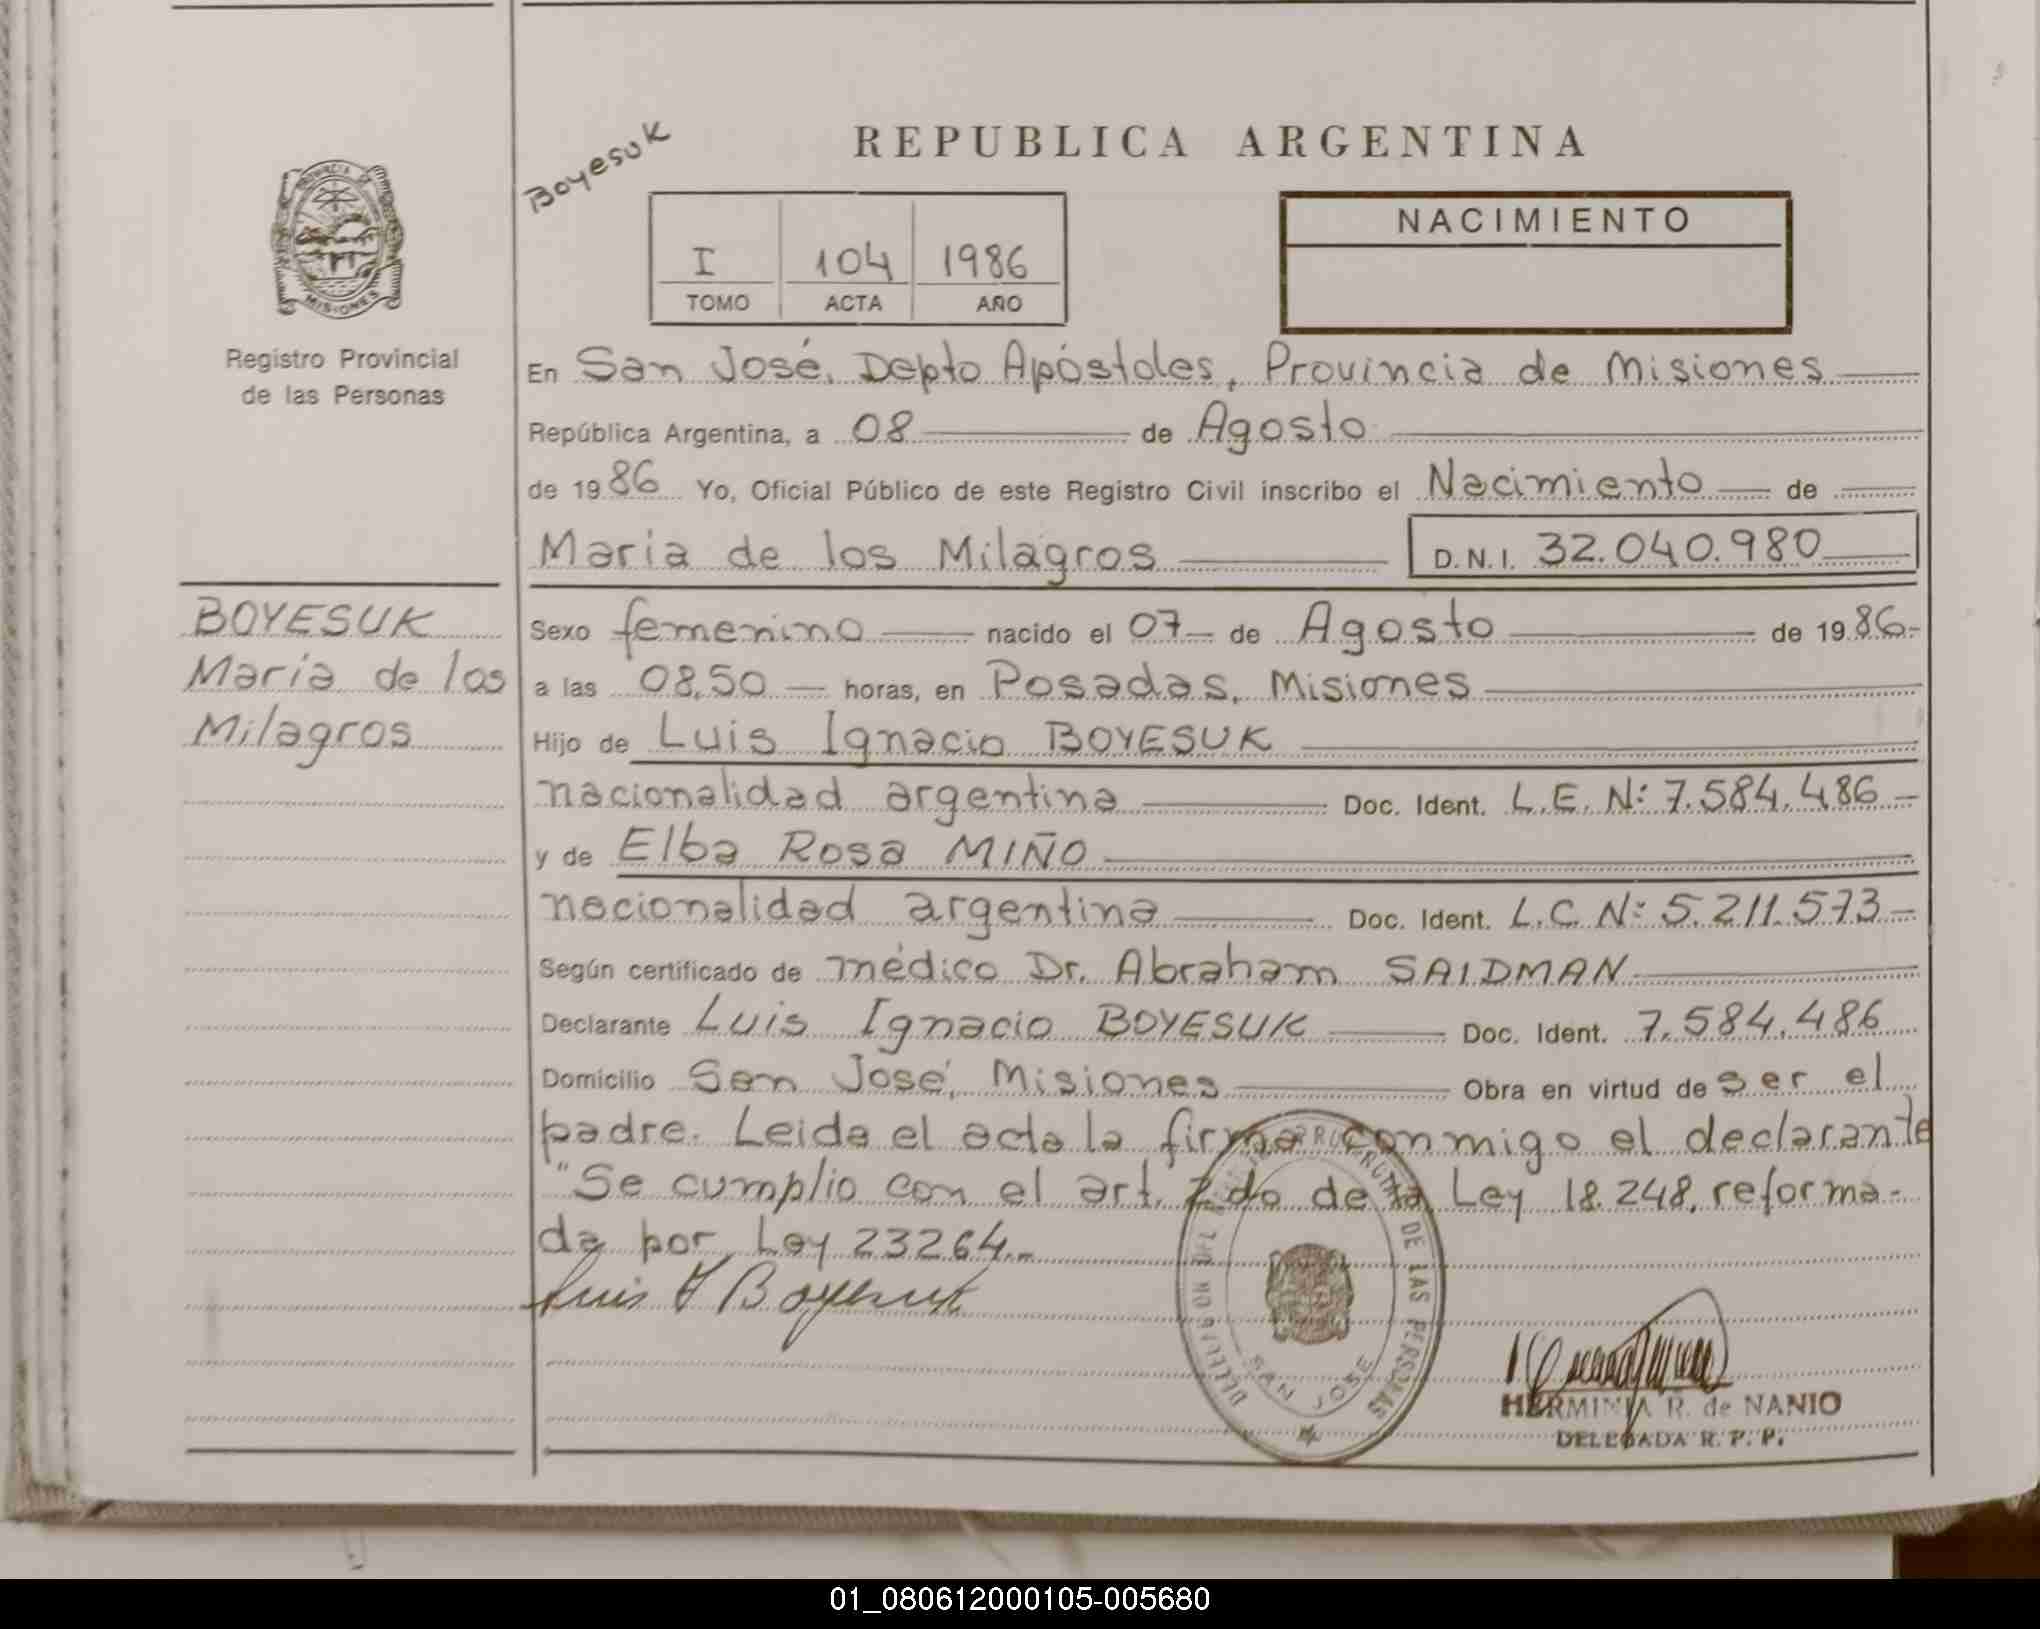 Boyesuk
REPUBLICA ARGENTINA
PROVINCIA DE
MISIONES
Registro Provincial
de las Personas
I 104 1986
TOMO ACTA AÑO
NACIMIENTO
En San José, Depto Apóstoles, Provincia de Misiones
República Argentina, a 08 de Agosto
de 1986 Yo, Oficial Público de este Registro Civil inscribo el Nacimiento de
Maria de los Milagros D.N.I. 32.040.980
BOYESUK
Maria de los
Milagros
Sexo femenino nacido el 07 de Agosto de 1986.
a las 08,50 horas, en Posadas, Misiones
Hijo de Luis Ignacio BOYESUK
nacionalidad argentina Doc. Ident. L.E. N: 7.584.486
y de Elba Rosa MIÑO
nacionalidad argentina Doc. Ident. L.C. N: 5.211.573
Según certificado de médico Dr. Abraham SAIDMAN
Declarante Luis Ignacio BOYESUK Doc. Ident. 7.584.486
Domicilio San José, Misiones Obra en virtud de ser el
padre. Leida el acta la firma conmigo el declarante
"Se cumplio con el art. 2do de la Ley 18.248, reforma-
da por Ley 23264.-
Luis I Boyesuk
DE LAS PERSONAS
SAN JOSE
HERMINIA R. de NANIO
DELEGADA R. P. P.
01_080612000105-005680